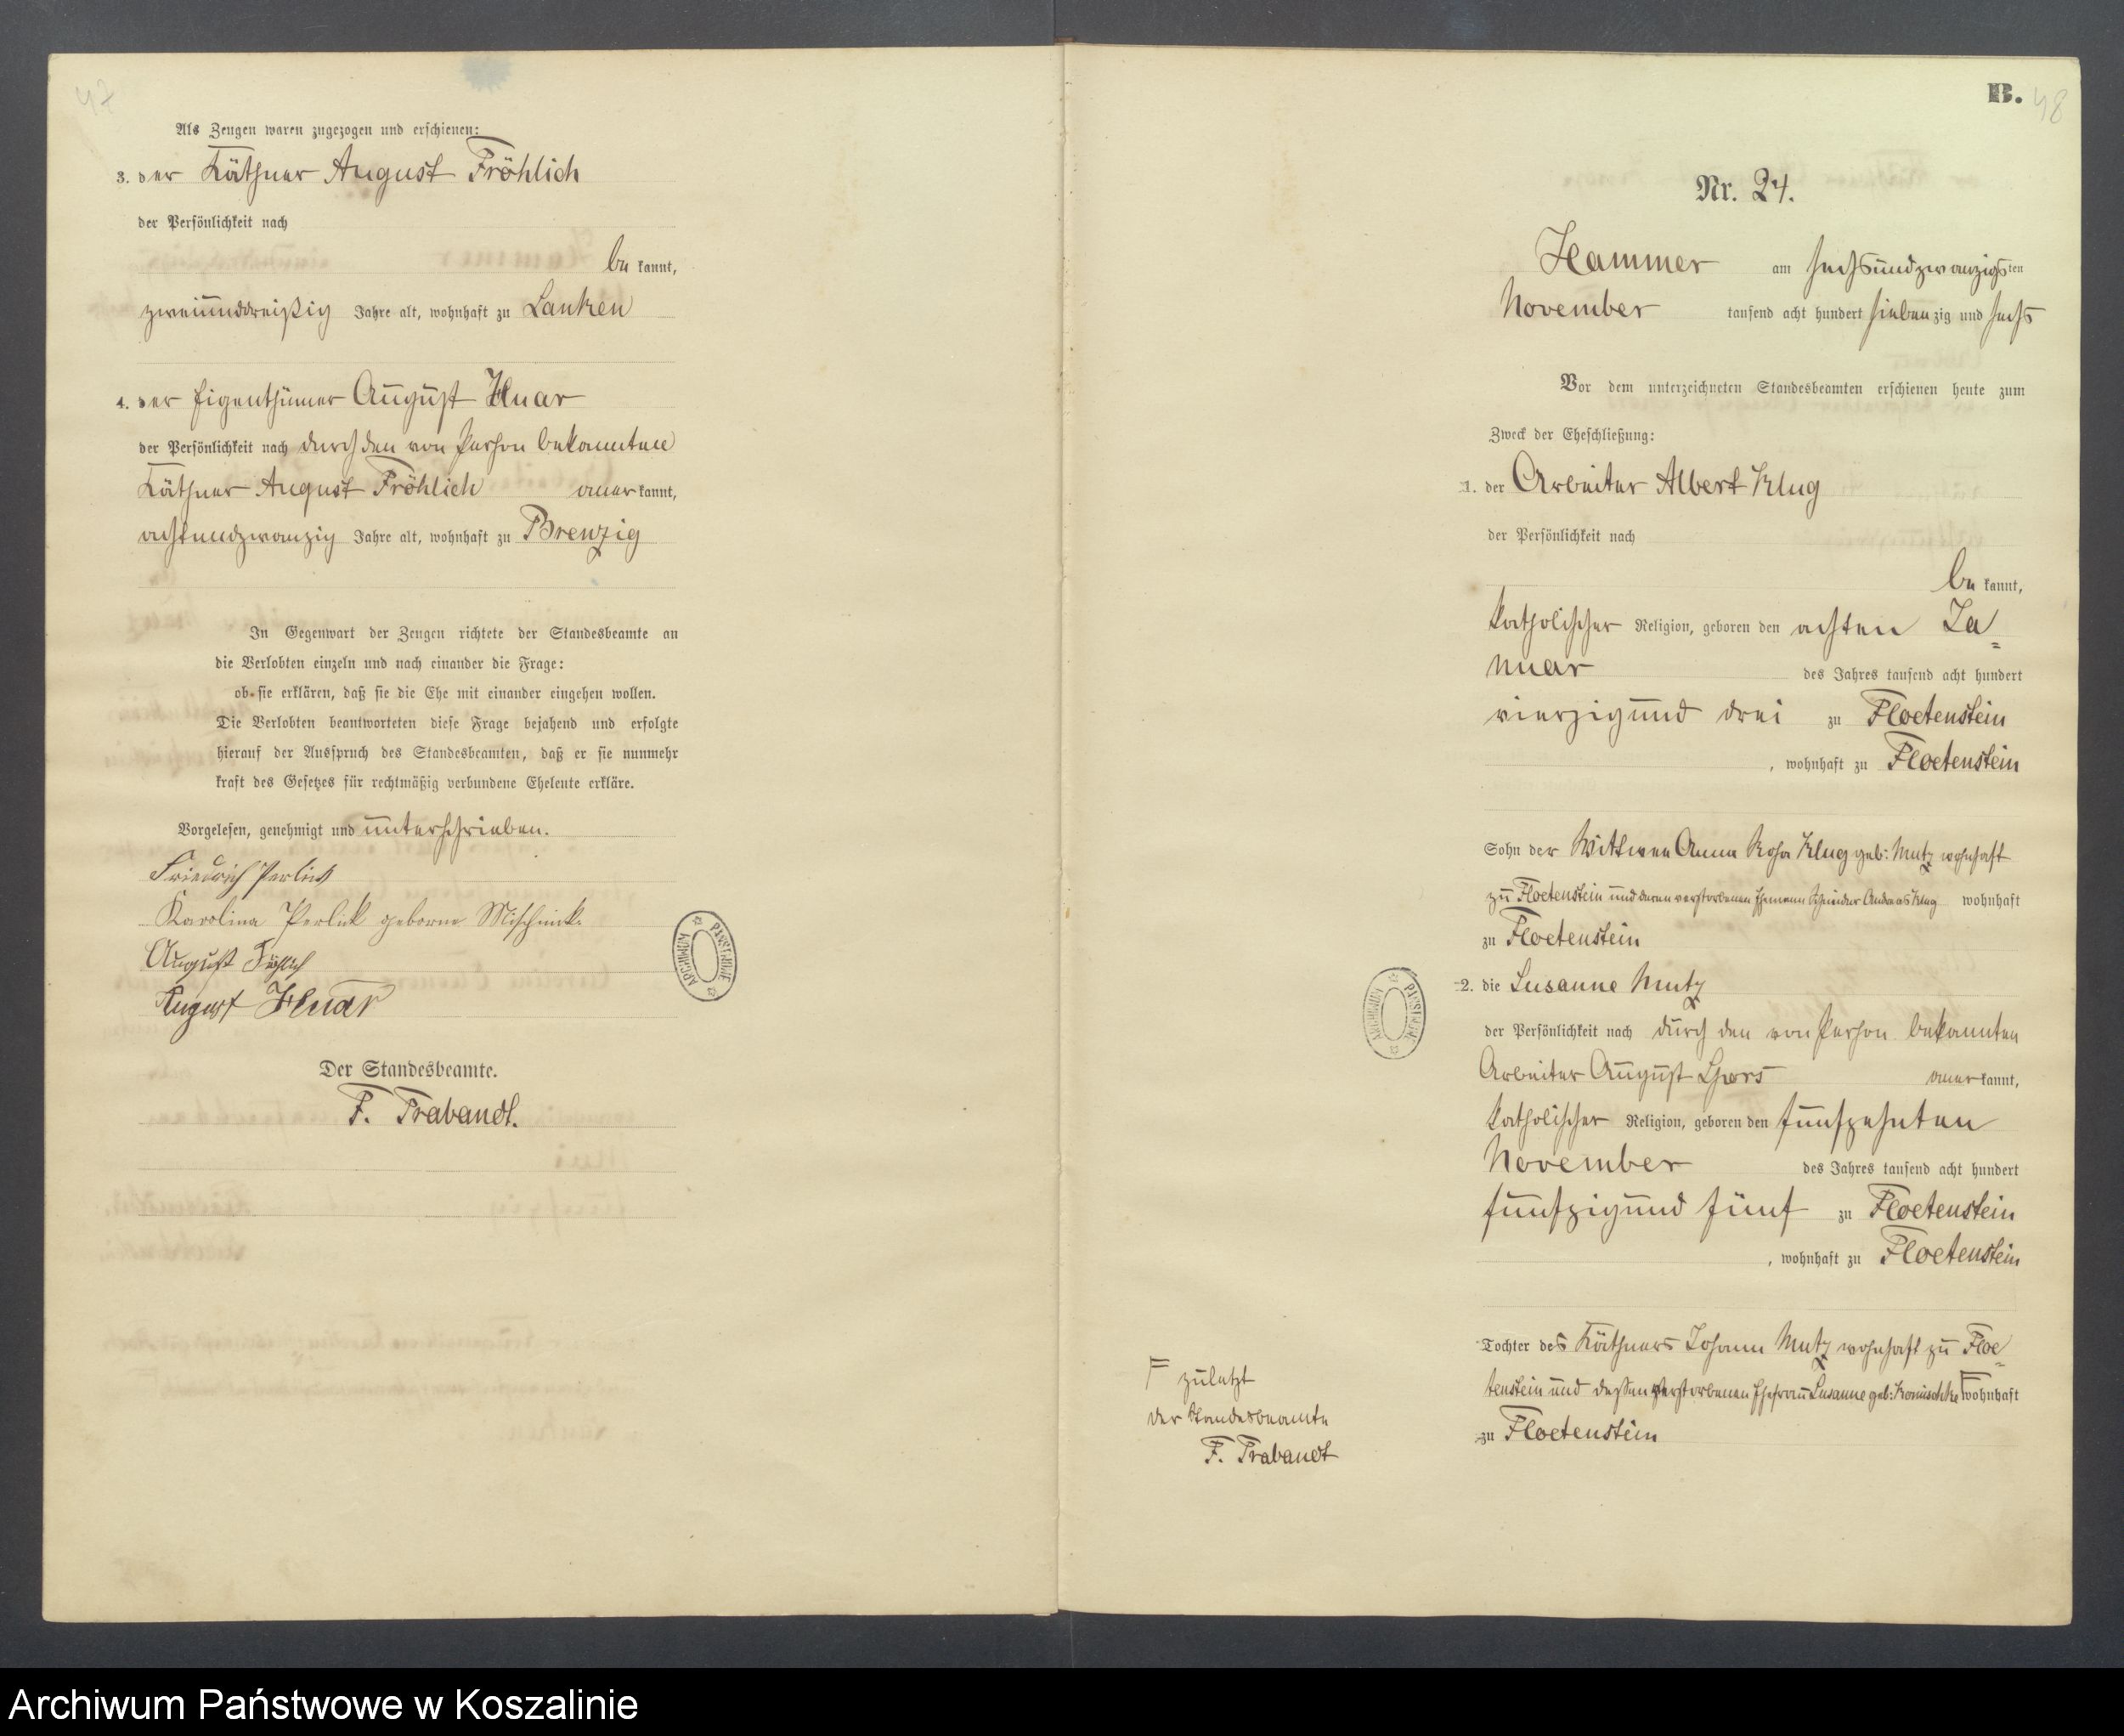 47
Als Zeugen waren zugezogen und erschienen:
3. der Käthner August Fröhlich
der Persönlichkeit nach
be kannt,
zweiunddreißig Jahre alt, wohnhaft zu Lanken
4. der Eigenthümer August
der Persönlichkeit nach durch den von Person bekannten
Käthner August Fröhlich aner kannt,
achtundzwanzig Jahre alt, wohnhaft zu Brenzig
In Gegenwart der Zeugen richtete der Standesbeamte an
die Verlobten einzeln und nach einander die Frage:
ob sie erklären, daß sie die Ehe mit einander eingehen wollen.
Die Verlobten beantworteten diese Frage bejahend und erfolgte
hierauf der Ausspruch des Standesbeamten, daß er sie nunmehr
kraft des Gesetzes für rechtmäßig verbundene Eheleute erkläre.
Vorgelesen, genehmigt und unterschrieben.
Friedrich Perlick
Karolina Perlick geborne
August Fröhlich
August
Der Standesbeamte.
F. Trabandt.
ARCHIWUM PAŃSTWOWE
B.
48
Nr. 24.
Hammer am sechsundzwanzigsten
November tausend acht hundert siebenzig und sechs
Vor dem unterzeichneten Standesbeamten erschienen heute zum
Zweck der Eheschließung:
1. der Arbeiter Albert Klug
der Persönlichkeit nach
be kannt,
katholischer Religion, geboren den achten Ja=
nuar des Jahres tausend acht hundert
vierzigund drei zu Floetenstein
, wohnhaft zu Floetenstein
Sohn der Wittwe Anna Rosa Klug geb: Mutz wohnhaft
zu Floetenstein und deren verstorbenen Ehemann Schneider Andreas Klug wohnhaft
zu Floetenstein
2. die Susanne Mutz
der Persönlichkeit nach durch den von Person bekannten
Arbeiter August Spors aner kannt,
katholischer Religion, geboren den fünfzehnten
November des Jahres tausend acht hundert
fünfzigund fünf zu Floetenstein
, wohnhaft zu Floetenstein
Tochter des Käthners Johann Mutz wohnhaft zu Floe=
tenstein und dessen verstorbenen Ehefrau Susanne geb: Komischke F wohnhaft
zu Floetenstein
F zuletzt
der Standesbeamte
F. Trabandt
ARCHIWUM PAŃSTWOWE
Archiwum Państwowe w Koszalinie